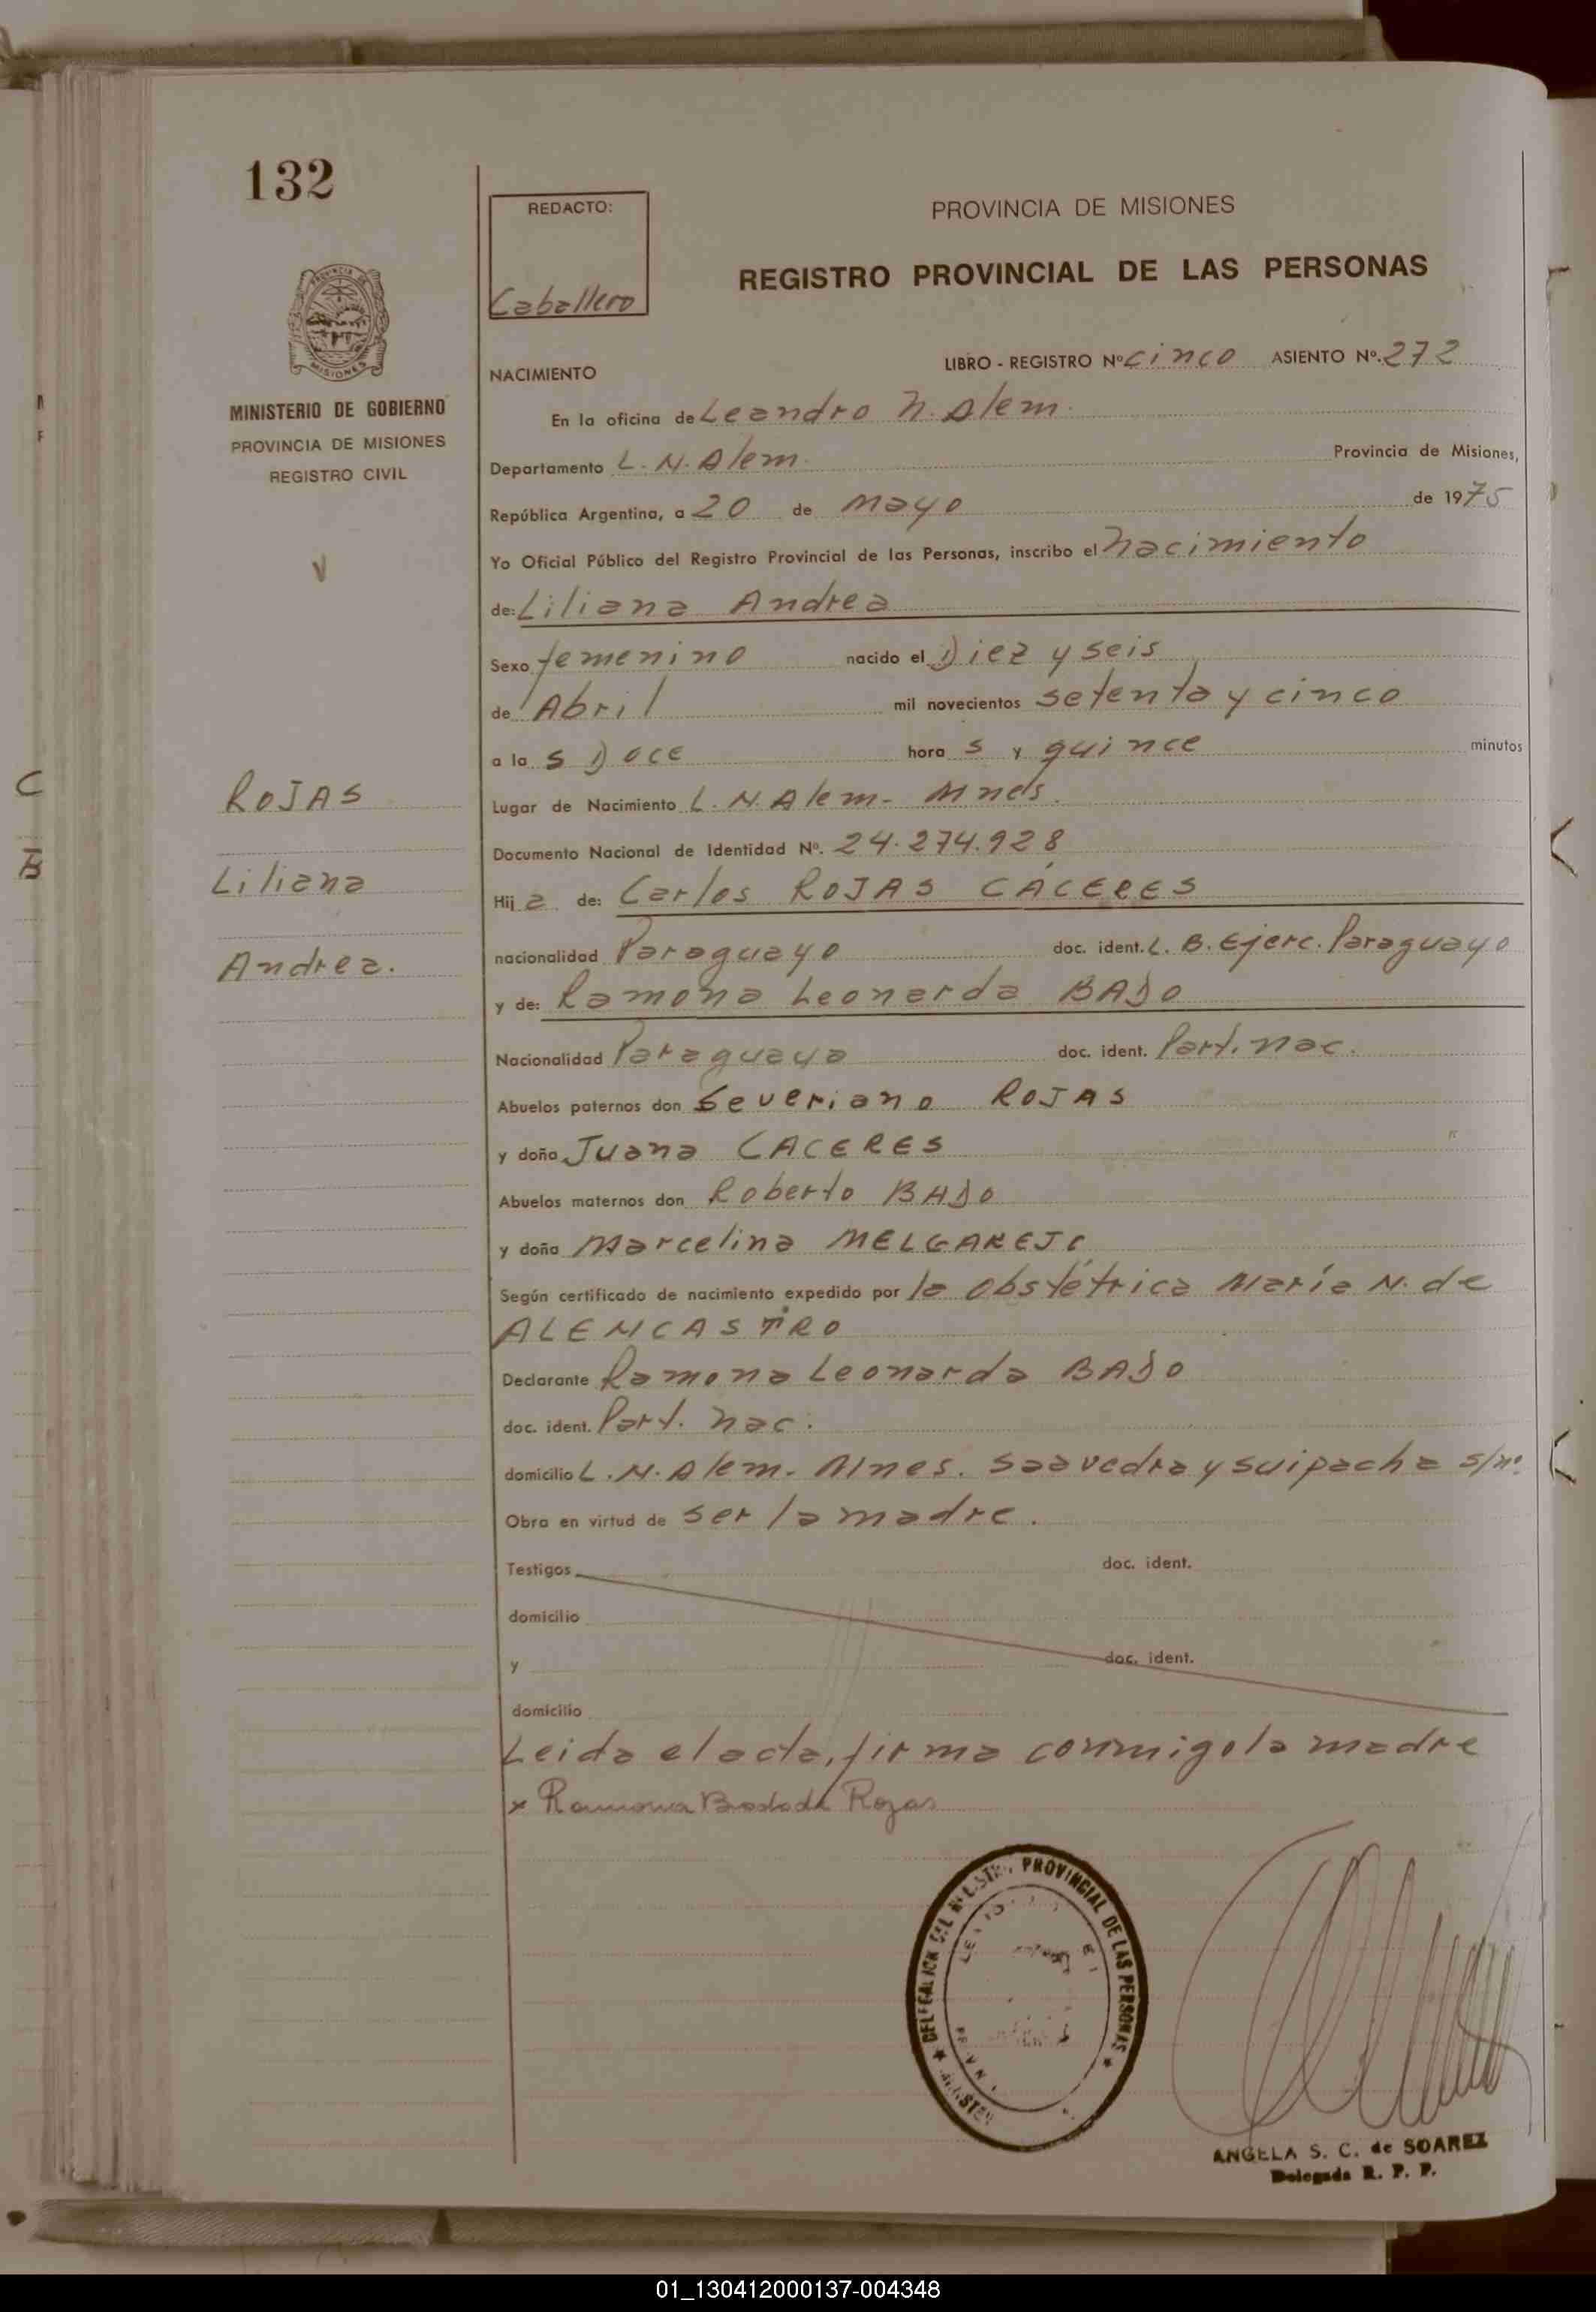 132
REDACTO:
Caballero
PROVINCIA DE MISIONES
REGISTRO PROVINCIAL DE LAS PERSONAS
MISIONES
MINISTERIO DE GOBIERNO
PROVINCIA DE MISIONES
REGISTRO CIVIL
NACIMIENTO LIBRO - REGISTRO Nº cinco ASIENTO Nº. 272
En la oficina de Leandro N. Alem.
Departamento L. N. Alem. Provincia de Misiones,
República Argentina, a 20 de Mayo de 1975
Yo Oficial Público del Registro Provincial de las Personas, inscribo el Nacimiento
de: Liliana Andrea
Sexo femenino nacido el Diez y seis
de Abril mil novecientos setenta y cinco
a la s Doce hora s y quince minutos
Lugar de Nacimiento L. N. Alem- Mnes.
Documento Nacional de Identidad Nº. 24.274.928
Hij a de: Carlos ROJAS CÁCERES
nacionalidad Paraguayo doc. ident. L. B. Ejerc. Paraguayo
y de: Ramona Leonarda BADO
Nacionalidad Paraguaya doc. ident. Part. nac.
Abuelos paternos don Severiano ROJAS
y doña Juana CACERES
Abuelos maternos don Roberto BADO
y doña Marcelina MELGAREJO
Según certificado de nacimiento expedido por la Obstétrica María N. de
ALENCASTRO
Declarante Ramona Leonarda BADO
doc. ident. Part. nac.
domicilio L. N. Alem. Mnes. Saavedra y suipacha s/nº.
Obra en virtud de ser la madre.
Testigos doc. ident.
domicilio
y doc. ident.
domicilio
Leida el acta, firma conmigo la madre
x Ramona Bado de Rojas
ROJAS
Liliana
Andrea.
C
B
DELEGACION DEL REGISTRO PROVINCIAL DE LAS PERSONAS
ANGELA S. C. de SOAREZ
Delegada R. P. P.
01_130412000137-004348